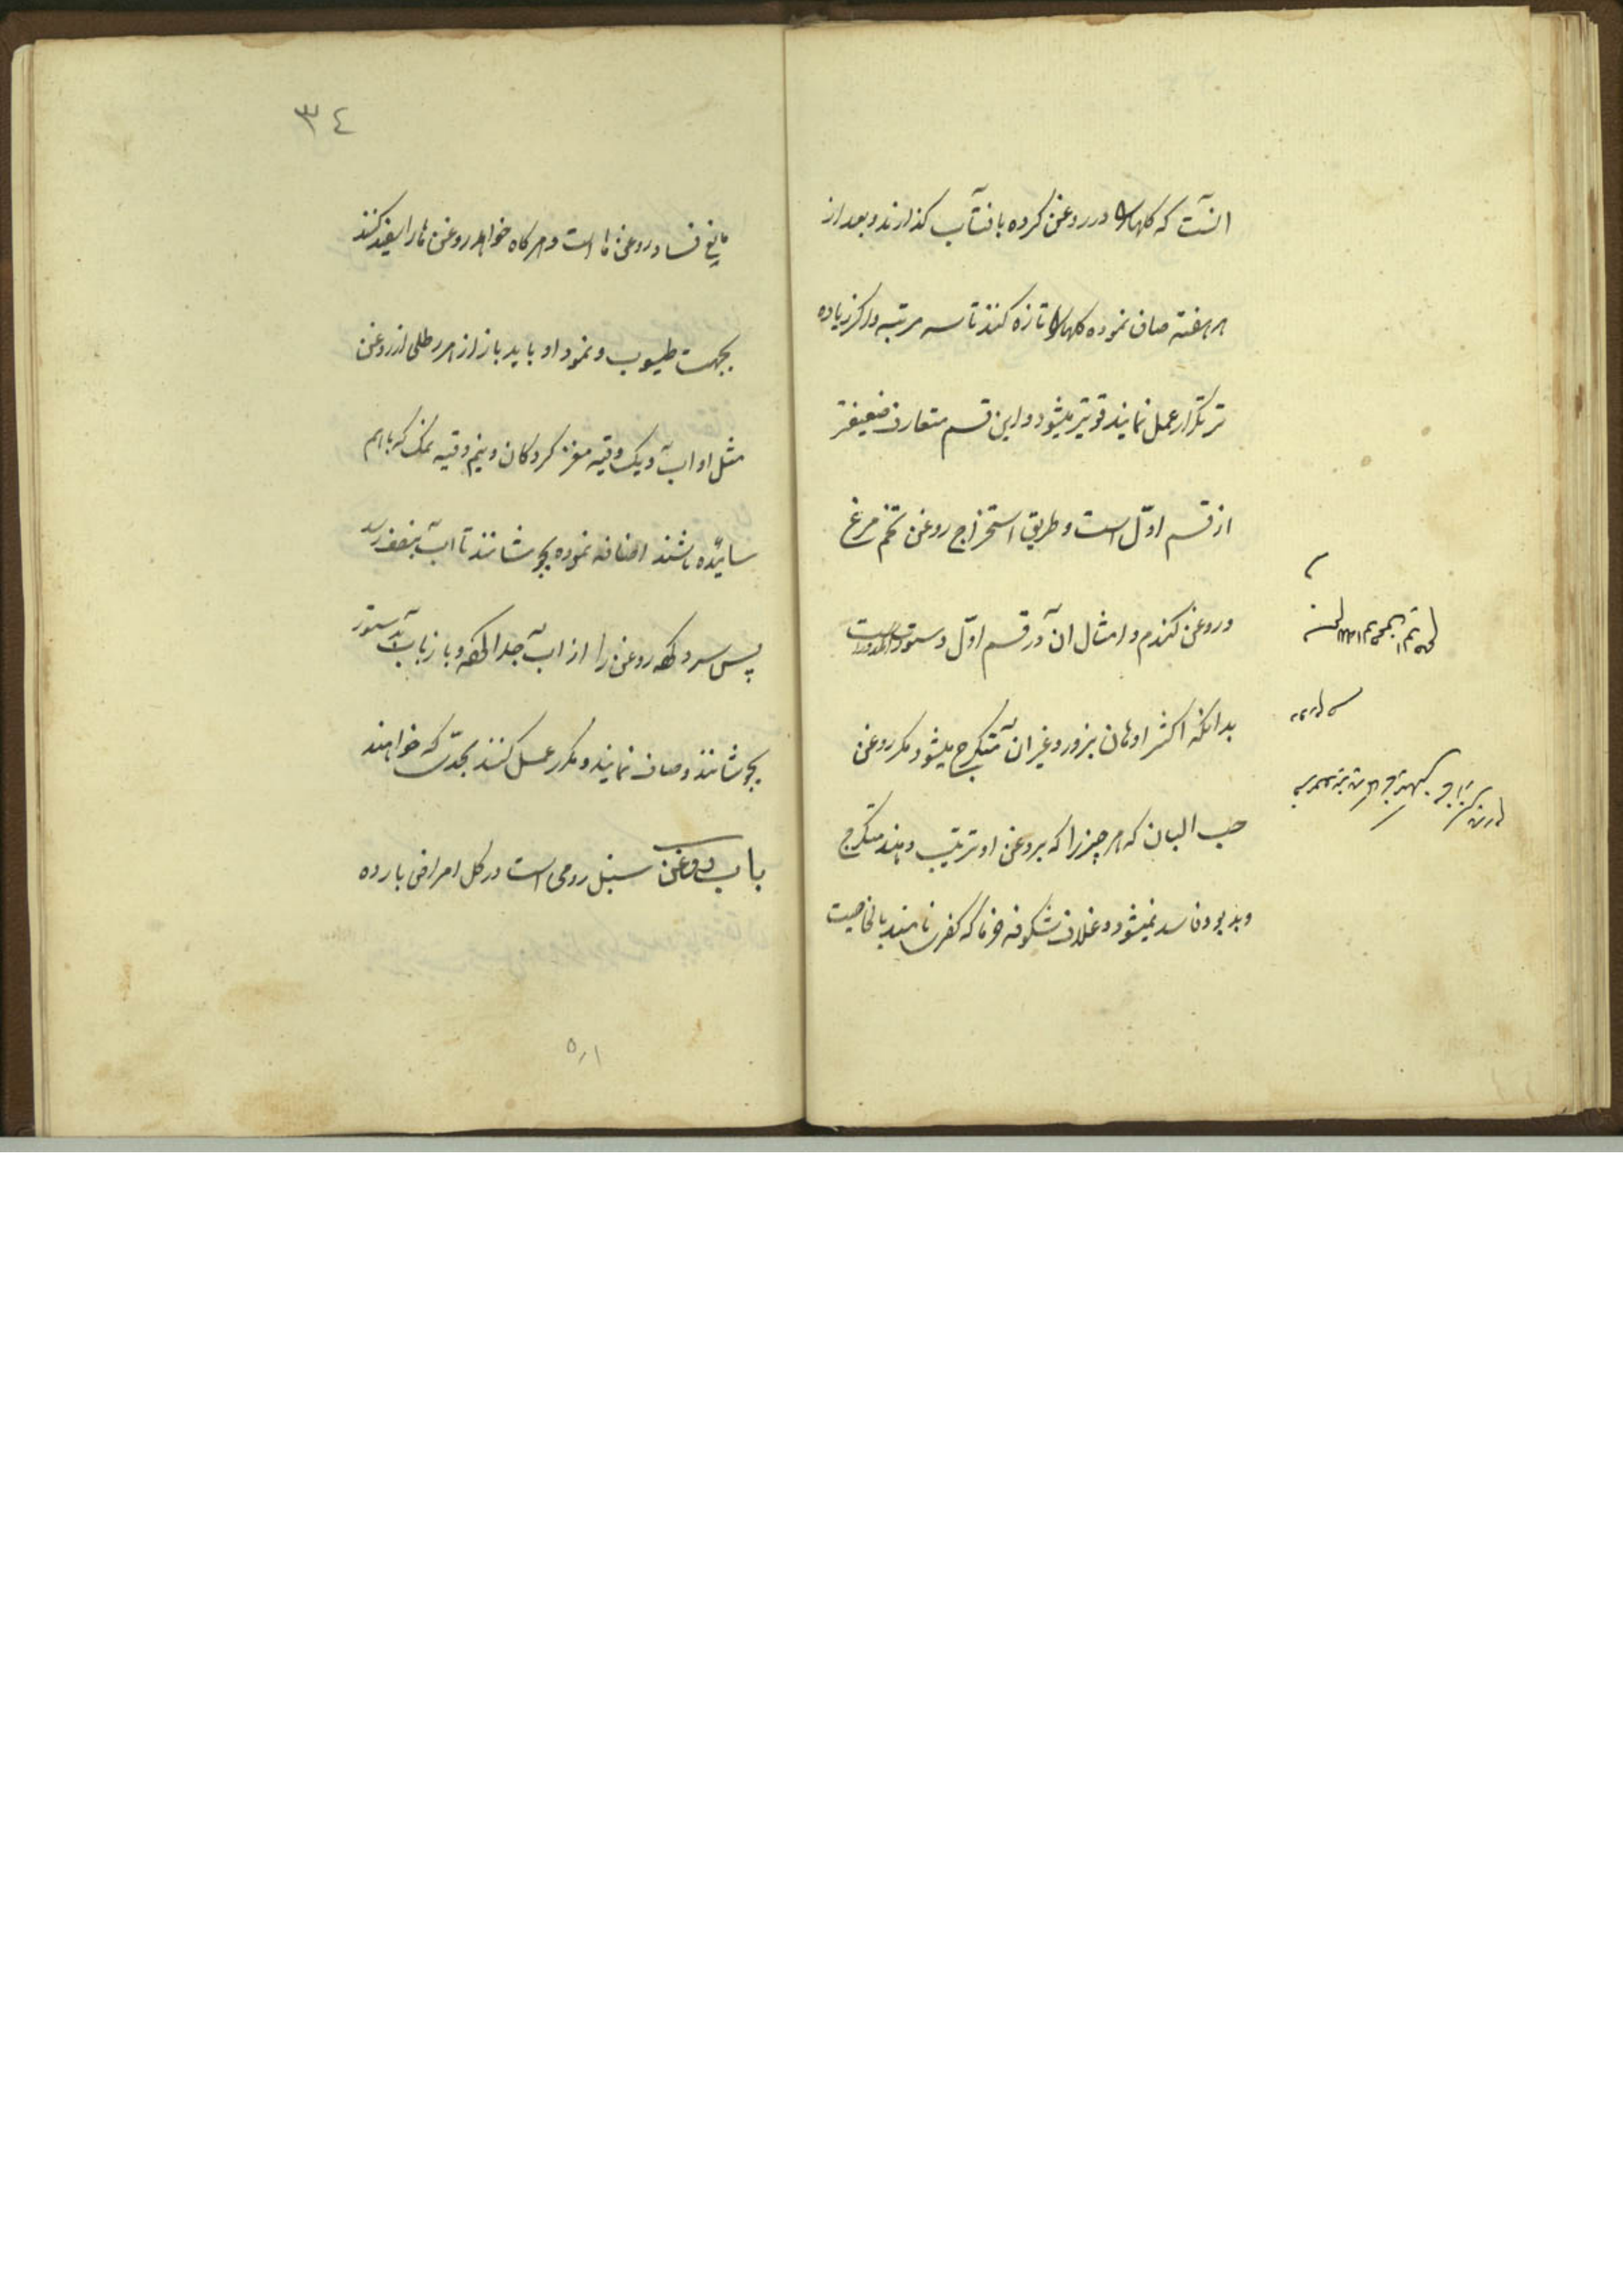 انست که کلها را در روغن کرده بافتاب کذارند و بعد از
هر هفته صاف نموده کلها را تازه کنند تا سه مرتبه و اکر زیاده
تر تکرار عمل نمایند قویتر میشود و این قسم متعارف ضعیفتر
از قسم اوّل است و طریق استخراج روغن تخم مرغ
و روغن کندم و امثال ان در قسم اوّل دستورات
بدانکه اکثر ادهان بزور و غیر ان متکرج میشود مکر روغن
حب البان که هر چیز را که بروغن او ترتیب دهند متکرج
و بدبو و فاسد نمیشود و غلاف شکوفه خرما که کفری نامند بالخاصیت
مانع فساد روغن ها است و هر کاه خواهند روغن ها را سفید کنند
بجهت طیوب و نمود او باید باز از هر رطلی از روغن
مثل او اب و یک وقیه مغز کردکان و نیم وقیه نمک که باهم
سائیده باشند اضافه نموده بجوشانند تا اب بنصف رسد
پس سرد کرده روغن را از اب جدا کرده و باز باب بدستور
بجوشانند و صاف نمایند و مکرر عمل کنند بحدّی که خواهند
باب روغن سنبل رومی است در کل امراض بارده
٣٤